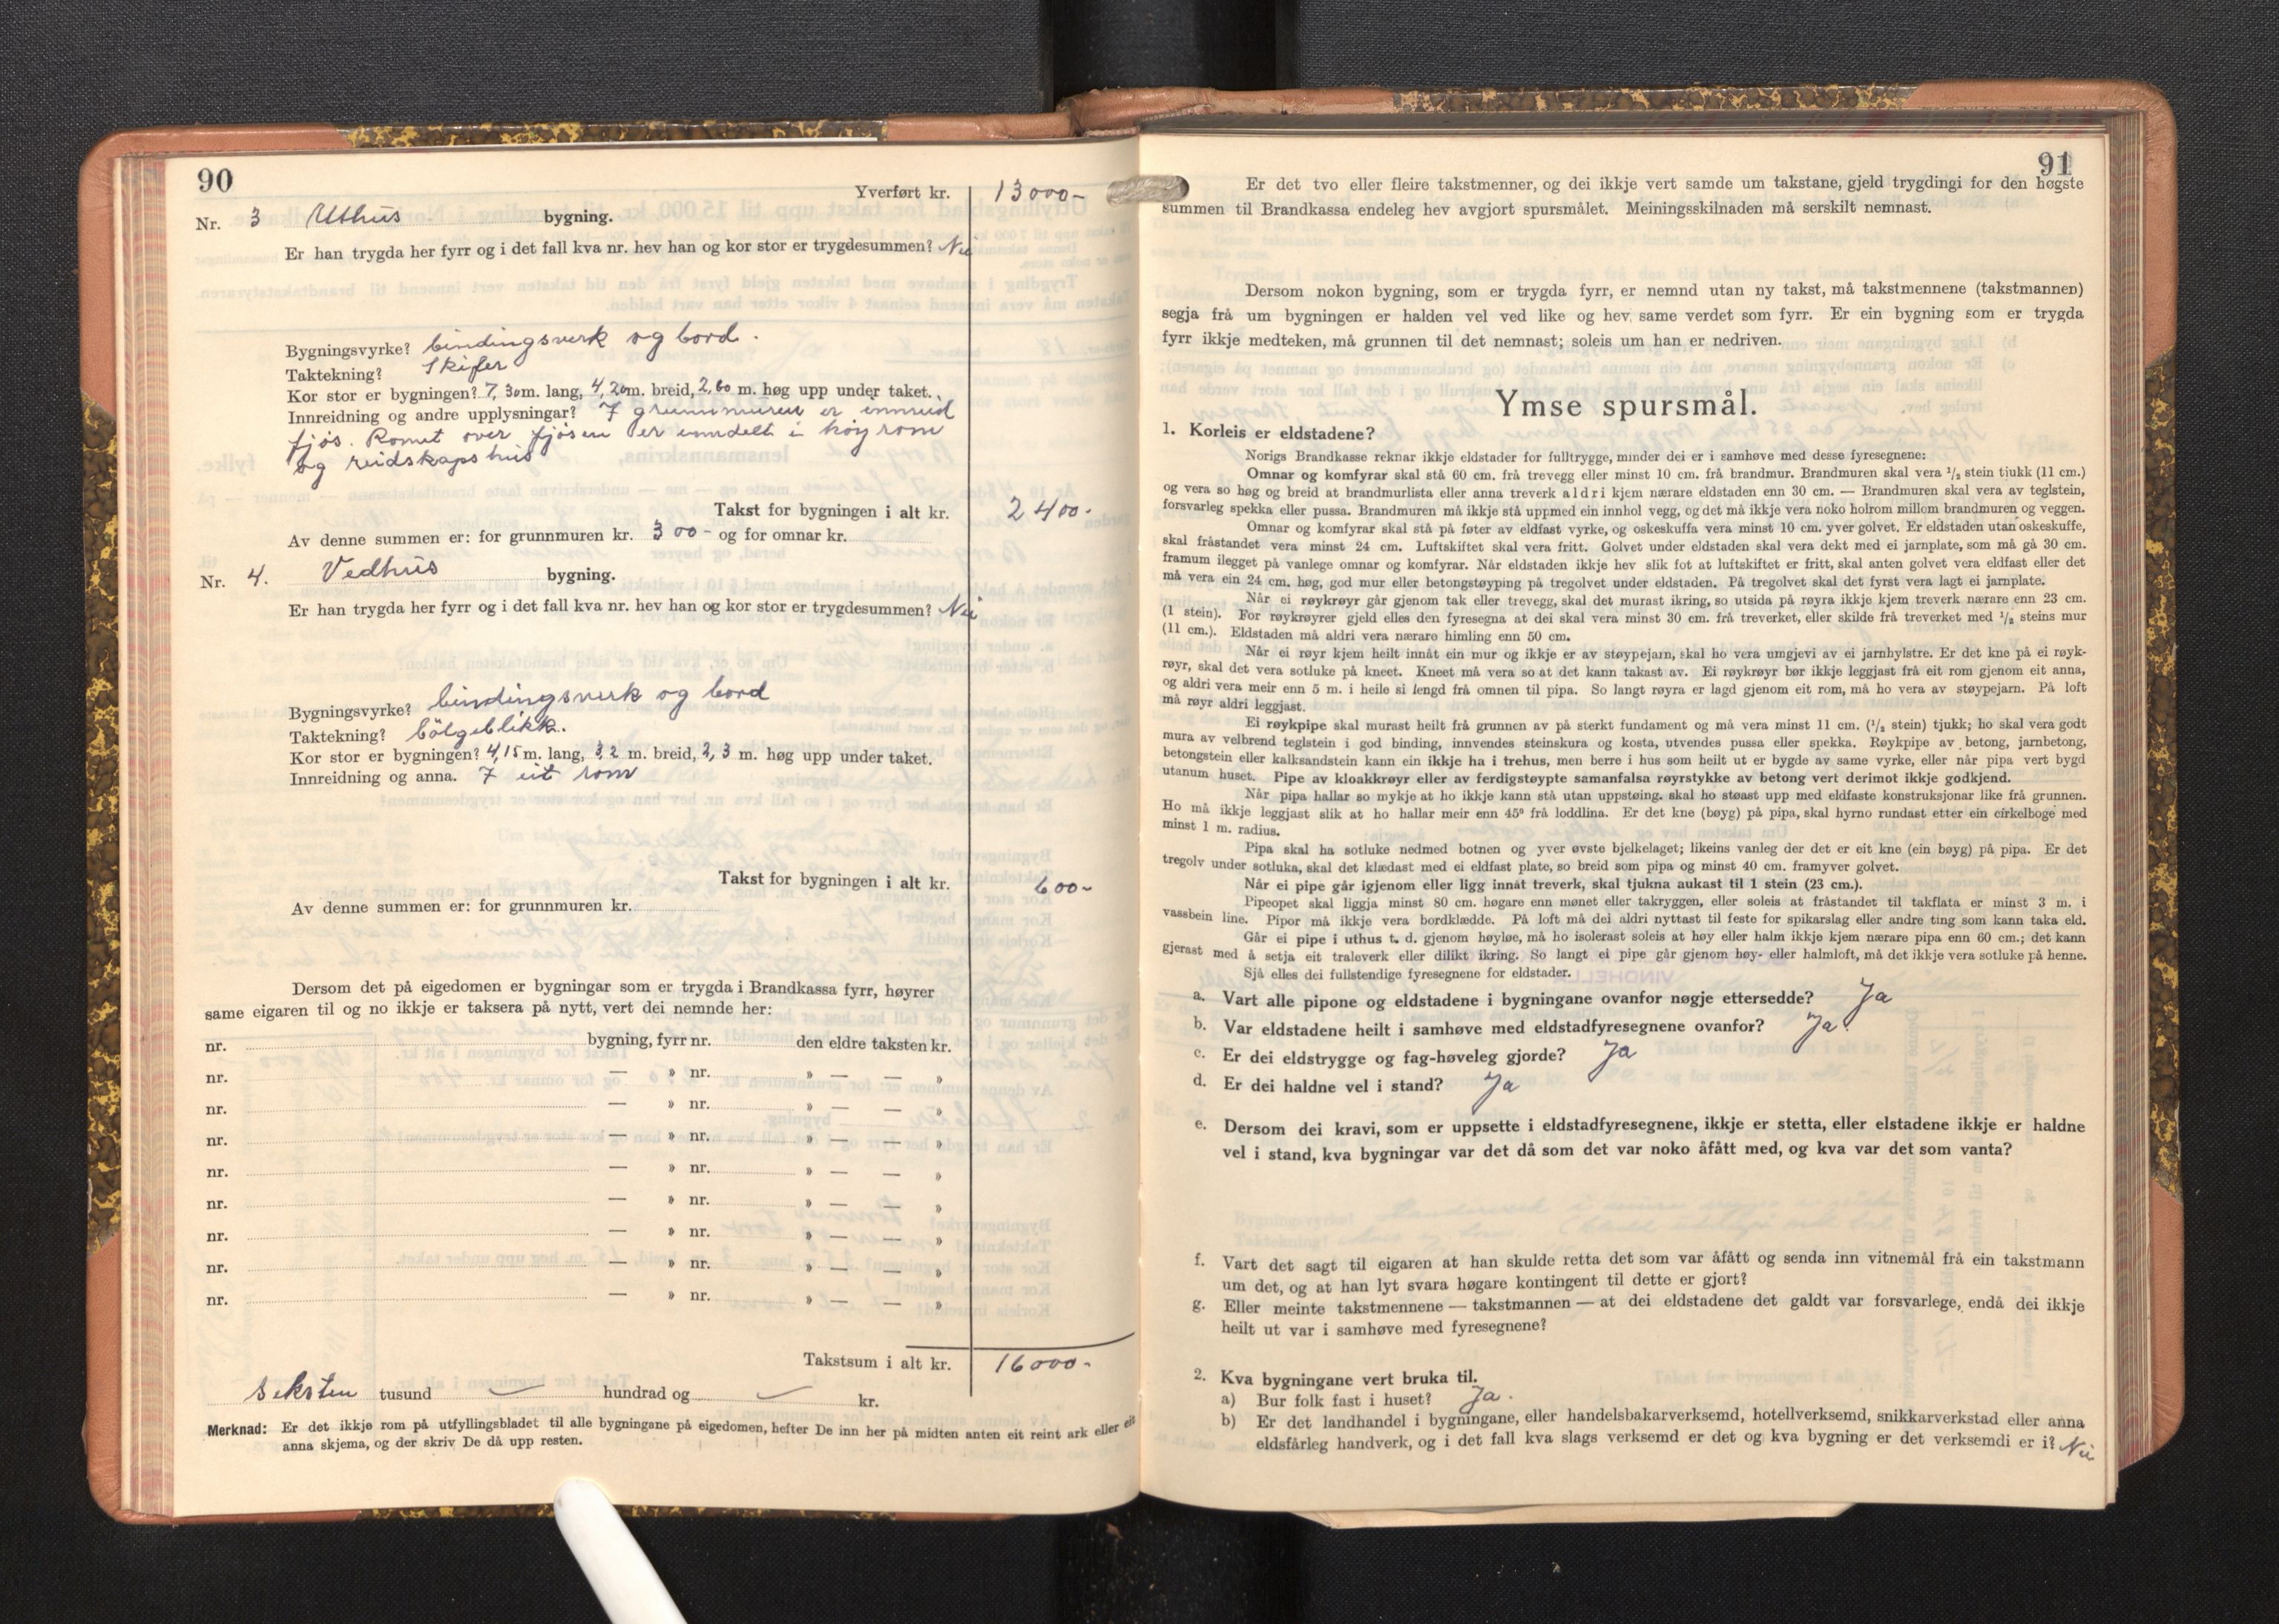 90
Yverført kr. 13000-
Nr. 3 Uthus bygning.
Er han trygda her fyrr og i det fall kva nr. hev han og kor stor er trygdesummen? Nei
Bygningsvyrke? bindingsverk og bord.
Taktekning? Skifer
Kor stor er bygningen? 7,30 m. lang, 4,20 m. breid, 2,60 m. høg upp under taket.
Innreidning og andre upplysningar? I grunnmuren er innreid
fjøs. Romet over fjøsen er inndelt i høyrom
og reidskapshus
Takst for bygningen i alt kr. 2400-
Av denne summen er: for grunnmuren kr. 300- og for omnar kr.
Nr. 4. Vedhus bygning.
Er han trygda her fyrr og i det fall kva nr. hev han og kor stor er trygdesummen? Nei
Bygningsvyrke? bindingsverk og bord
Taktekning? bölgeblikk.
Kor stor er bygningen? 4,15 m. lang, 3,2 m. breid, 2,3 m. høg upp under taket.
Innreidning og anna. I eit rom
Takst for bygningen i alt kr. 600-
Av denne summen er: for grunnmuren kr.
Dersom det på eigedomen er bygningar som er trygda i Brandkassa fyrr, høyrer
same eigaren til og no ikkje er taksera på nytt, vert dei nemnde her:
nr. bygning, fyrr nr. den eldre taksten kr.
nr. — » nr. » — — »
nr. — » nr. » — — »
nr. — » nr. » — — »
nr. — » nr. » — — »
nr. — » nr. » — — »
nr. — » nr. » — — »
nr. — » nr. » — — »
nr. — » nr. » — — »
Takstsum i alt kr. 16000-
seksten tusund hundrad og kr.
Merknad: Er det ikkje rom på utfyllingsbladet til alle bygningane på eigedomen, hefter De inn her på midten anten eit reint ark eller eit
anna skjema, og der skriv De då upp resten.
91
Er det tvo eller fleire takstmenner, og dei ikkje vert samde um takstane, gjeld trygdingi for den høgste
summen til Brandkassa endeleg hev avgjort spursmålet. Meiningsskilnaden må serskilt nemnast.
Dersom nokon bygning, som er trygda fyrr, er nemnd utan ny takst, må takstmennene (takstmannen)
segja frå um bygningen er halden vel ved like og hev same verdet som fyrr. Er ein bygning som er trygda
fyrr ikkje medteken, må grunnen til det nemnast; soleis um han er nedriven.
Ymse spursmål.
1. Korleis er eldstadene?
Norigs Brandkasse reknar ikkje eldstader for fulltrygge, minder dei er i samhøve med desse fyresegnene:
Omnar og komfyrar skal stå 60 cm. frå trevegg eller minst 10 cm. frå brandmur. Brandmuren skal vera ½ stein tjukk (11 cm.)
og vera so høg og breid at brandmurlista eller anna treverk aldri kjem nærare eldstaden enn 30 cm. — Brandmuren skal vera av teglstein,
forsvarleg spekka eller pussa. Brandmuren må ikkje stå uppmed ein innhol vegg, og det må ikkje vera noko holrom millom brandmuren og veggen.
Omnar og komfyrar skal stå på føter av eldfast vyrke, og oskeskuffa vera minst 10 cm. yver golvet. Er eldstaden utan oskeskuffe,
skal fråstandet vera minst 24 cm. Luftskiftet skal vera fritt. Golvet under eldstaden skal vera dekt med ei jarnplate, som må gå 30 cm.
framum ilegget på vanlege omnar og komfyrar. Når eldstaden ikkje hev slik fot at luftskiftet er fritt, skal anten golvet vera eldfast eller det
må vera ein 24 cm. høg, god mur eller betongstøyping på tregolvet under eldstaden. På tregolvet skal det fyrst vera lagt ei jarnplate.
Når ei røykrøyr går gjenom tak eller trevegg, skal det murast ikring, so utsida på røyra ikkje kjem treverk nærare enn 23 cm.
(1 stein). For røykrøyrer gjeld elles den fyresegna at dei skal vera minst 30 cm. frå treverket, eller skilde frå treverket med ½ steins mur
(11 cm.). Eldstaden må aldri vera nærare himling enn 50 cm.
Når ei røyr kjem heilt innåt ein mur og ikkje er av støypejarn, skal ho vera umgjevi av ei jarnhylstre. Er det kne på ei røyk-
røyr, skal det vera sotluke på kneet. Kneet må vera so at det kann takast av. Ei røykrøyr bør ikkje leggjast frå eit rom gjenom eit anna,
og aldri vera meir enn 5 m. i heile si lengd frå omnen til pipa. So langt røyra er lagd gjenom eit rom, må ho vera av støypejarn. På loft
må røyr aldri leggjast.
Ei røykpipe skal murast heilt frå grunnen av på sterkt fundament og må vera minst 11 cm. (½ stein) tjukk; ho skal vera godt
mura av velbrend teglstein i god binding, innvendes steinskura og kosta, utvendes pussa eller spekka. Røykpipe av betong, jarnbetong,
betongstein eller kalksandstein kann ein ikkje ha i trehus, men berre i hus som heilt ut er bygde av same vyrke, eller når pipa vert bygd
utanum huset. Pipe av kloakkrøyr eller av ferdigstøypte samanfalsa røyrstykke av betong vert derimot ikkje godkjend.
Når pipa hallar so mykje at ho ikkje kann stå utan uppstøing, skal ho støast upp med eldfaste konstruksjonar like frå grunnen.
Ho må ikkje leggjast slik at ho hallar meir enn 45° frå loddlina. Er det kne (bøyg) på pipa, skal hyrno rundast etter ein cirkelboge med
minst 1 m. radius.
Pipa skal ha sotluke nedmed botnen og yver øvste bjelkelaget; likeins vanleg der det er eit kne (ein bøyg) på pipa. Er det
tregolv under sotluka, skal det klædast med ei eldfast plate, so breid som pipa og minst 40 cm. framyver golvet.
Når ei pipe går igjenom eller ligg innåt treverk, skal tjukna aukast til 1 stein (23 cm.).
Pipeopet skal liggja minst 80 cm. høgare enn mønet eller takryggen, eller soleis at fråstandet til takflata er minst 3 m. i
vassbein line. Pipor må ikkje vera bordklædde. På loft må dei aldri nyttast til feste for spikarslag eller andre ting som kann taka eld.
Går ei pipe i uthus t. d. gjenom høyløe, må ho isolerast soleis at høy eller halm ikkje kjem nærare pipa enn 60 cm.; det kann
gjerast med å setja eit traleverk eller dilikt ikring. So langt ei pipe går gjenom høy- eller halmloft, må det ikkje vera sotluke på henne.
Sjå elles dei fullstendige fyresegnene for eldstader.
a. Vart alle pipone og eldstadene i bygningane ovanfor nøgje ettersedde? Ja
b. Var eldstadene heilt i samhøve med eldstadfyresegnene ovanfor? Ja
c. Er dei eldstrygge og fag-høveleg gjorde? Ja
d. Er dei haldne vel i stand? Ja
e. Dersom dei kravi, som er uppsette i eldstadfyresegnene, ikkje er stetta, eller elstadene ikkje er haldne
vel i stand, kva bygningar var det då som det var noko åfått med, og kva var det som vanta?
f. Vart det sagt til eigaren at han skulde retta det som var åfått og senda inn vitnemål frå ein takstmann
um det, og at han lyt svara høgare kontingent til dette er gjort?
g. Eller meinte takstmennene — takstmannen — at dei eldstadene det galdt var forsvarlege, endå dei ikkje
heilt ut var i samhøve med fyresegnene?
2. Kva bygningane vert bruka til.
a) Bur folk fast i huset? Ja.
b) Er det landhandel i bygningane, eller handelsbakarverksemd, hotellverksemd, snikkarverkstad eller anna
eldsfårleg handverk, og i det fall kva slags verksemd er det og kva bygning er det verksemdi er i? Nei